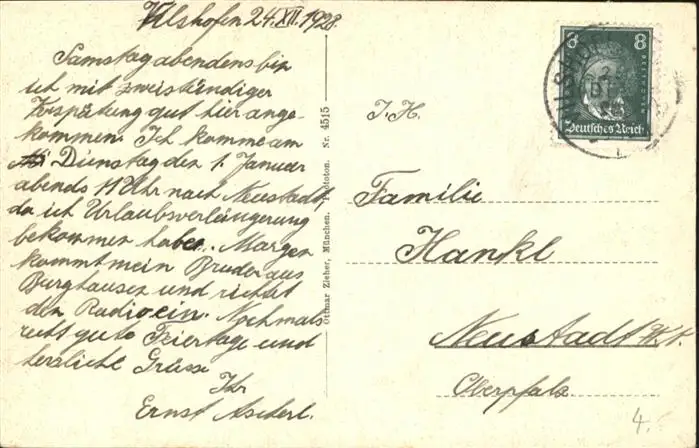 Vilshofen 24.XII.1928.
Samstag abendens bin
ich mit zweistündiger
Verspätung gut hier ange-
kommen. Ich komme am
Dienstag den 1. Januar
abends 11 Uhr nach Neustadt,
da ich Urlaubsverlängerung
bekommen habe. Morgen
kommt mein Bruder aus
Burghausen und richtet
den Radio ein. Nochmals
recht gute Feiertage und
herzliche Grüsse
Ihr
Ernst Ascherl.
Ottmar Zieher, München. Prototon. Nr. 4515
8 8
Deutsches Reich
I. H.
Familie
Hankl
Neustadt
Oberpfalz
4.